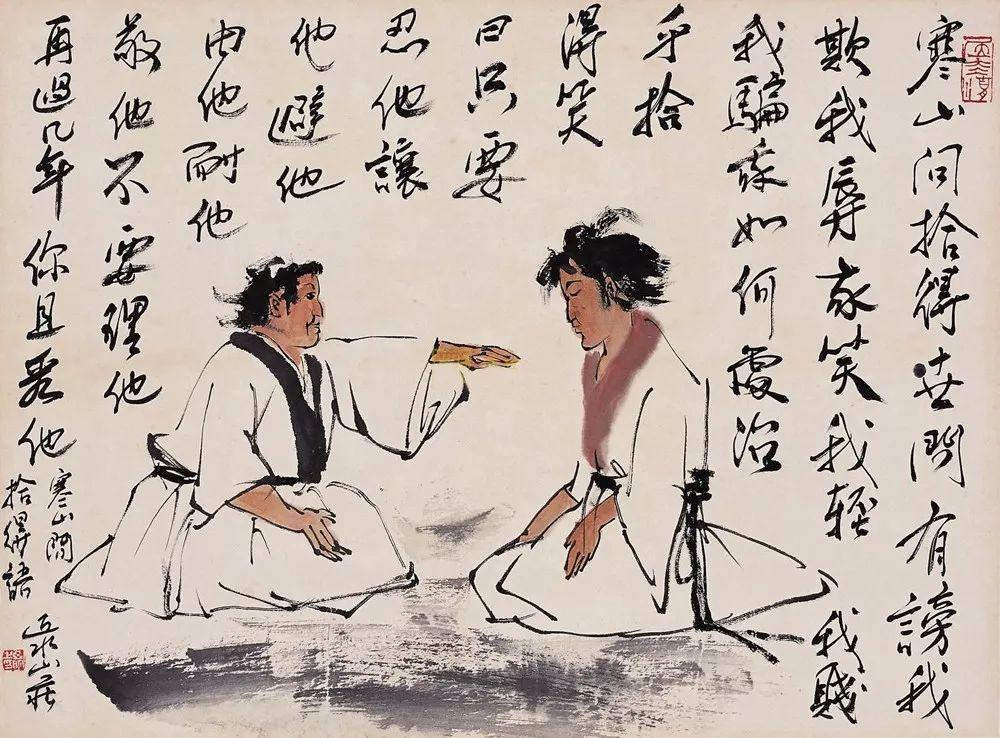 寒山問拾得世間有謗我
欺我辱我笑我輕我賤
我騙我如何處治
乎拾
得笑
曰只要
忍他讓
他避他
由他耐他
敬他不要理他
再過几年你且看他
寒山問
拾得語
山莊